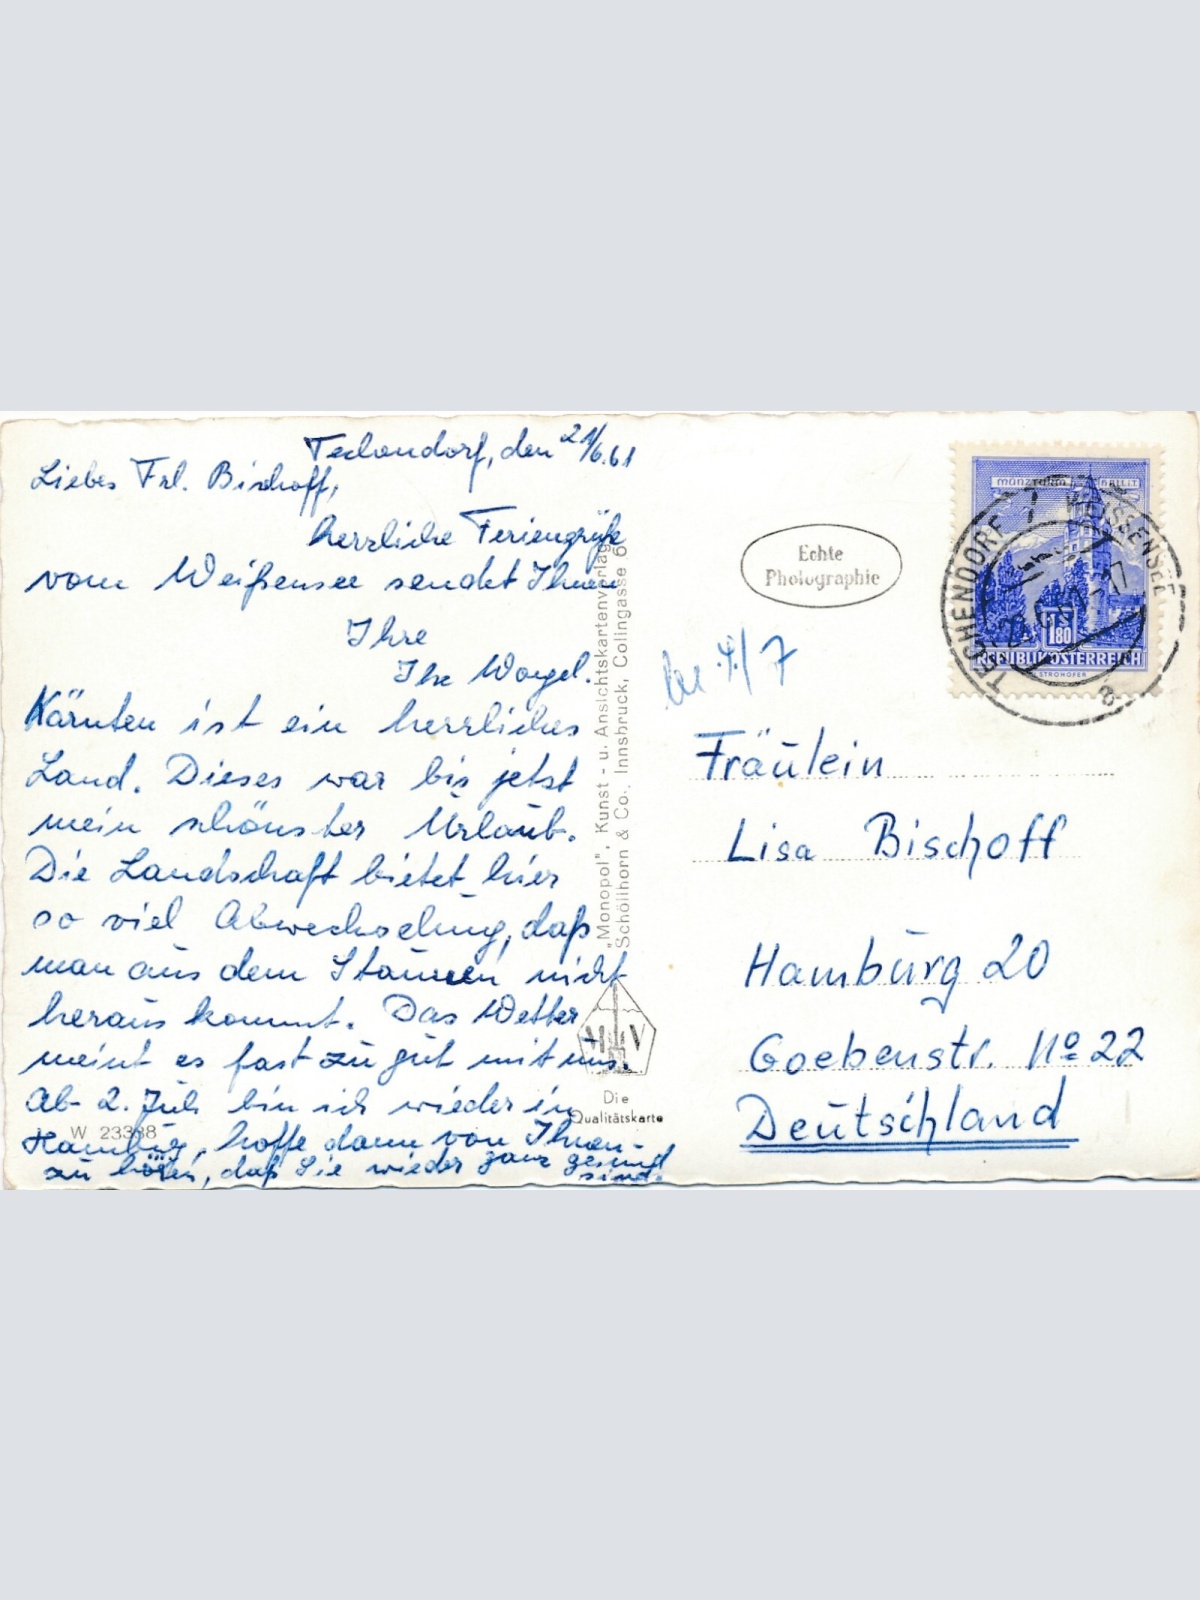 Techendorf, den 21/6.61
Liebes Frl. Bischoff,
herzliche Feriengrüße
vom Weißensee sendet Ihnen
Ihre
Ihr
Kärnten ist ein herrliches
Land. Dieses war bis jetzt
mein schönster Urlaub.
Die Landschaft bietet hier
so viel Abwechslung, daß
man aus dem Staunen nicht
heraus kommt. Das Wetter
meint es fast zu gut mit uns.
Ab 2. Juli bin ich wieder in
Hamburg, hoffe dann von Ihnen
zu hören, daß Sie wieder ganz gesund
sind.
W 23388
"Monopol", Kunst- u. Ansichtskartenverlag
Schöllhorn & Co., Innsbruck, Colingasse 6
M V
Die
Qualitätskarte
Echte
Photographie
MÜNZTURM HALL I.T.
1.80
REPUBLIK ÖSTERREICH
STROHOFER
TECHENDORF / WEISSENSEE
a
4/7
Fräulein
Lisa Bischoff
Hamburg 20
Goebenstr. No 22
Deutschland